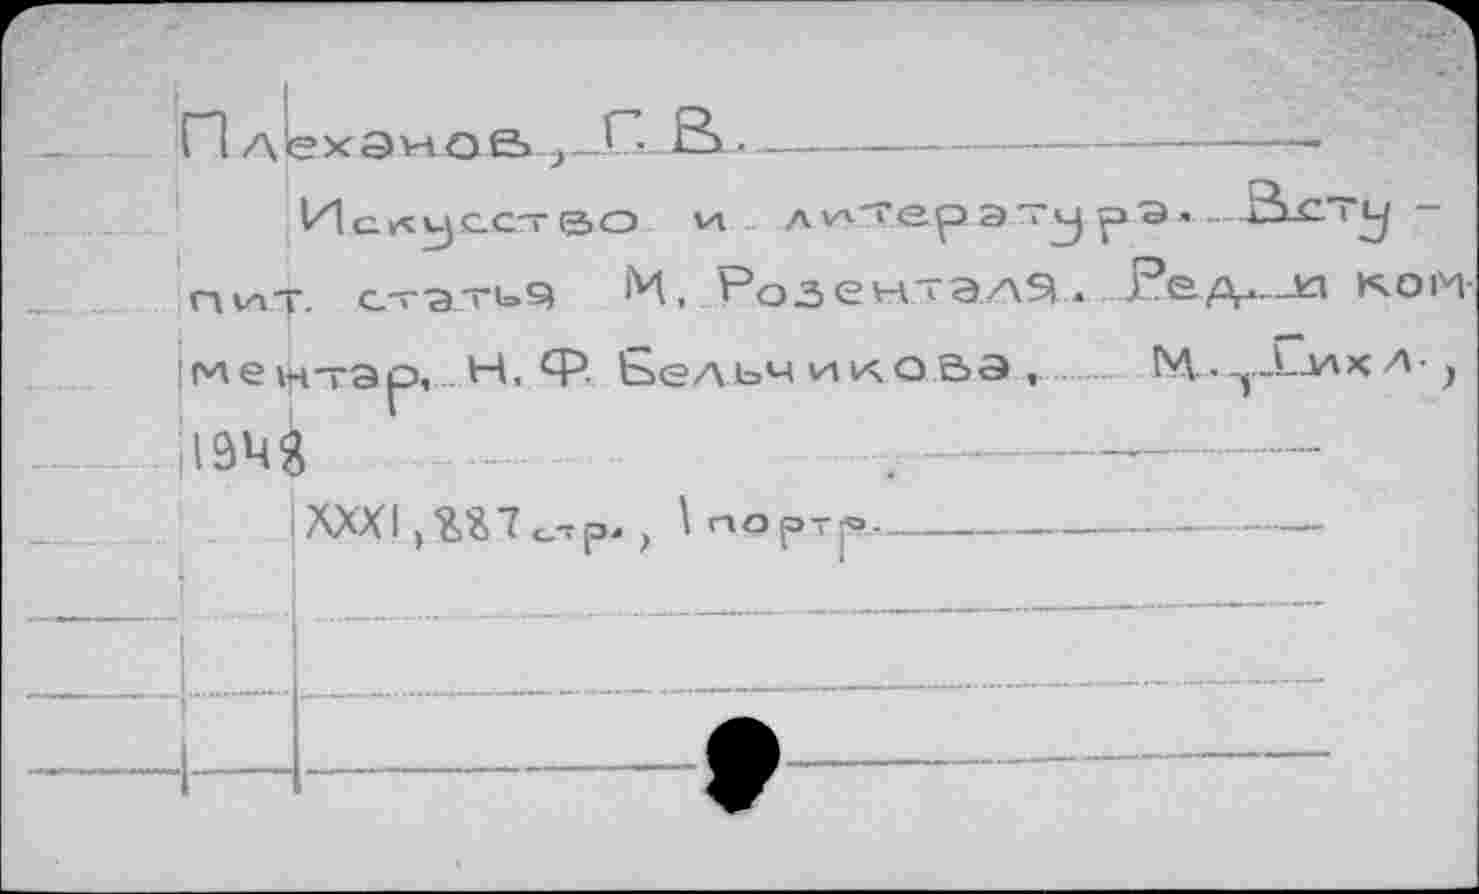 Плеханов, Г. В.
Искусство и литература. Всту-
пит. статья М. Розенталя. Ред. и ком-
ментар. Н. Ф. Бельчикова, М., Гихл.,
1948
XXXI, 887 стр., 1 портр.